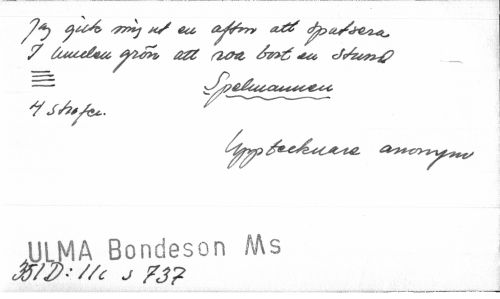 Jag gick mig ut en afton att spatsera
I lunden grön att roa bort en stund
Spelmannen
4 strofer.
Upptecknare anonym
ULMA Bondeson Ms
351 D:11c s 737